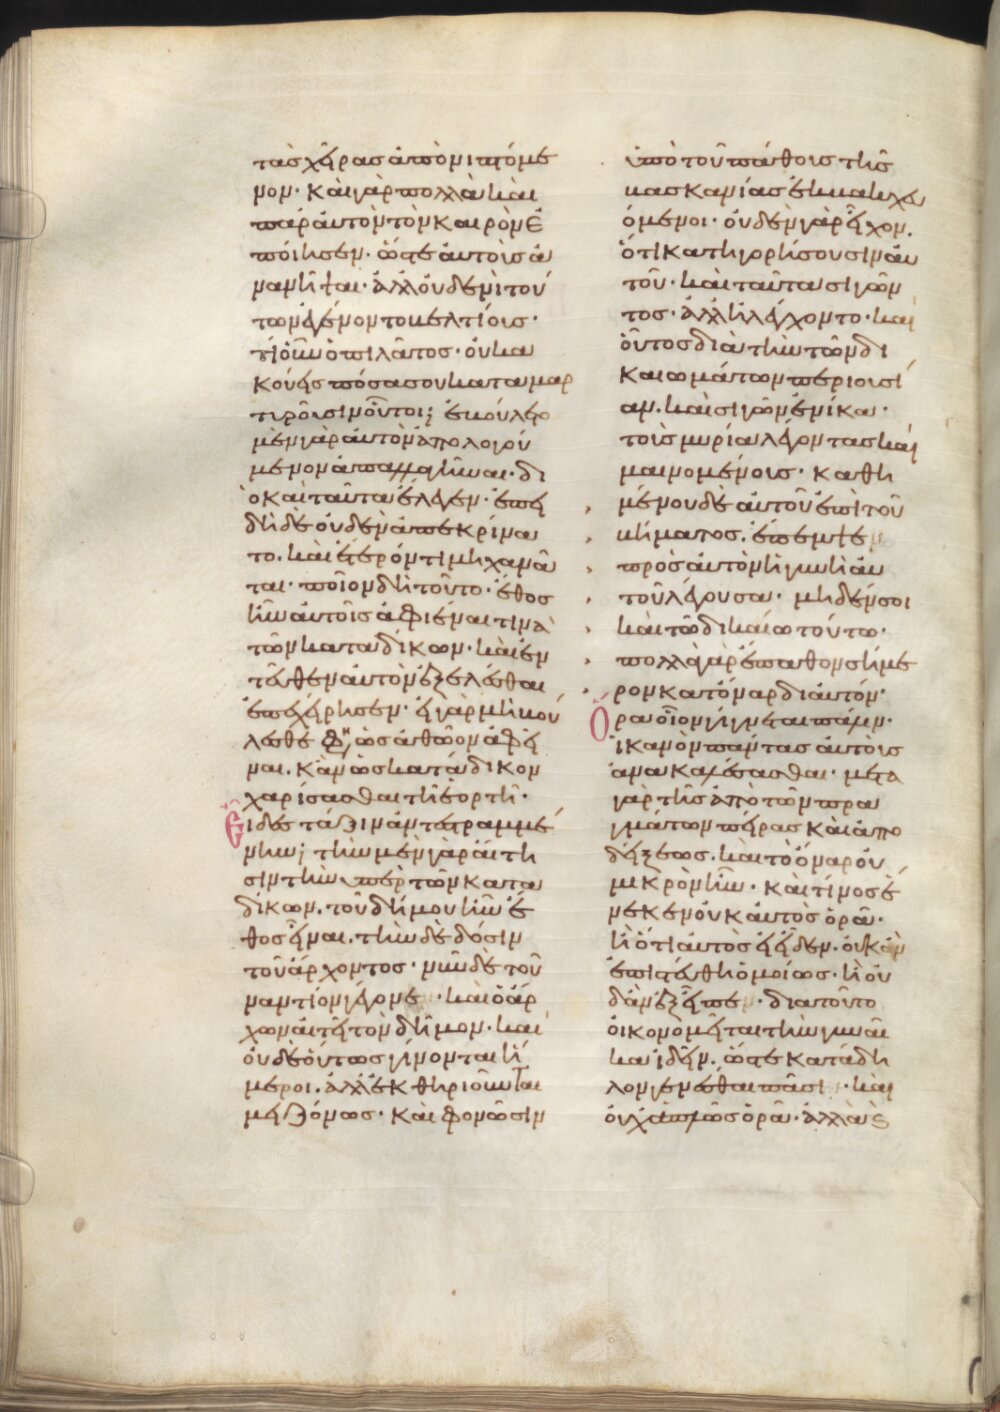 τὰς χεῖρας ἀπονιπτόμε
νον· καὶ γὰρ πολλὰ καὶ
παρ' αὐτὸν τὸν καιρὸν ἐ
ποίησεν· ὥστε αὐτοὺς ἀ
νανῆψαι· ἀλλ' οὐδενὶ τού
των ἐγένοντο βελτίους·
τί οὖν ὁ πιλᾶτος· οὐκ ἀ
κούεις πόσα σου καταμαρ
τυροῦσιν οὗτοι; ἐβούλετο
μὲν γὰρ αὐτὸν ἀπολογού
μενον ἀπαλλαγῆναι· δι
ὸ καὶ ταῦτα ἔλεγεν· ἐπει
δὴ δὲ οὐδὲν ἀπεκρίνα
το. καὶ ἕτερόν τι μηχανᾶ
ται· ποῖον δὴ τοῦτο· ἔθος
ἦν αὐτοῖς ἀφιέναι τινὰ
τῶν καταδίκων· καὶ ἐν
τεῦθεν αὐτὸν ἐξελέσθαι
ἐπεχείρησεν· εἰ γὰρ μὴ βού
λεσθε φη ὡς ἀθῶον ἀφεῖ
ναι. κἂν ὡς κατάδικον
χαρίσασθαι τῇ ἑορτῇ·
Εἶδες τάξιν ἀντεστραμμέ
νην; τὴν μὲν γὰρ αἴτη
σιν τὴν ὑπὲρ τῶν κατα
δίκων. τοῦ δήμου ἦν ἔ
θος εἶναι. τὴν δὲ δόσιν
τοῦ ἄρχοντος· νῦν δὲ τοὐ
ναντίον γέγονε· καὶ ὁ ἄρ
χων αἰτεῖ τὸν δῆμον· καὶ
οὐδὲ οὕτως γίνονται ἥ
μεροι. ἀλλ' ἐκθηριοῦνται
μειζόνως· καὶ φονῶσιν
ὑπὸ τοῦ πάθους τῆς
βασκανίας ἐκβακχευ
όμενοι· οὐδὲν γὰρ εἶχον.
ὅτι κατηγορήσουσιν αὐ
τοῦ· καὶ ταῦτα σιγῶν
τος· ἀλλ' ἠλέγχοντο· καὶ
οὕτως διὰ τὴν τῶν δι
καιωμάτων περιουσί
αν. καὶ σιγῶν ἐνίκα·
τοὺς μυρία λέγοντας καὶ
μαινομένους· καθη
μένου δὲ αὐτοῦ ἐπὶ τοῦ
βήματος. ἔπεμψε
πρὸς αὐτὸν ἡ γυνὴ αὐ
τοῦ λέγουσα· μηδέν σοι
καὶ τῷ δικαίῳ τούτῳ·
πολλὰ γὰρ ἔπαθον σήμε
ρον κατ' ὄναρ δι' αὐτόν·
Ὅρα οἷον γίγνεται πάλιν·
ἱκανὸν πάντας αὐτοὺς
ἀνακαλέσασθαι· μετὰ
γὰρ τῆς ἀπὸ τῶν πρα
γμάτων πείρας καὶ ἀπο
δείξεως. καὶ τὸ ὄναρ οὐ
μικρὸν ἦν· καὶ τίνος ἕ
νεκεν οὐκ αὐτὸς ὁρᾷ·
ἢ ὅτι αὐτὸς εἰ εἶδεν. οὐκ ἂν
ἐπιστεύθη ὁμοίως· ἢ οὐ
δ' ἂν ἐξεῖπεν· διατοῦτο
οἰκονομεῖται τὴν γυναῖ
κα ἰδεῖν. ὥστε κατάδη
λον γενέσθαι πᾶσι· καὶ
οὐχ ἁπλῶς ὁρᾷ· ἀλλὰ καὶ